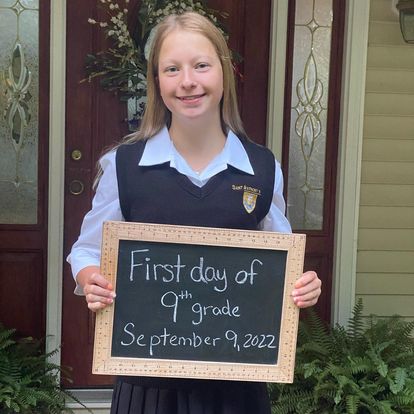 First day of
9th grade
September 9, 2022